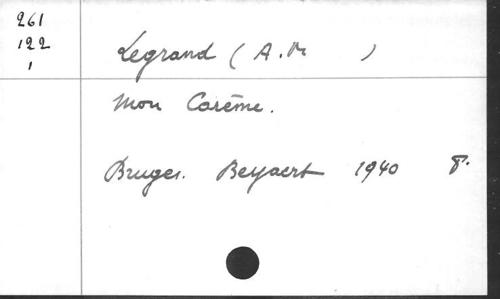 261
122
1
Legrand (A.M )
Mon Carême.
Bruges. Beyaert 1940 8°.